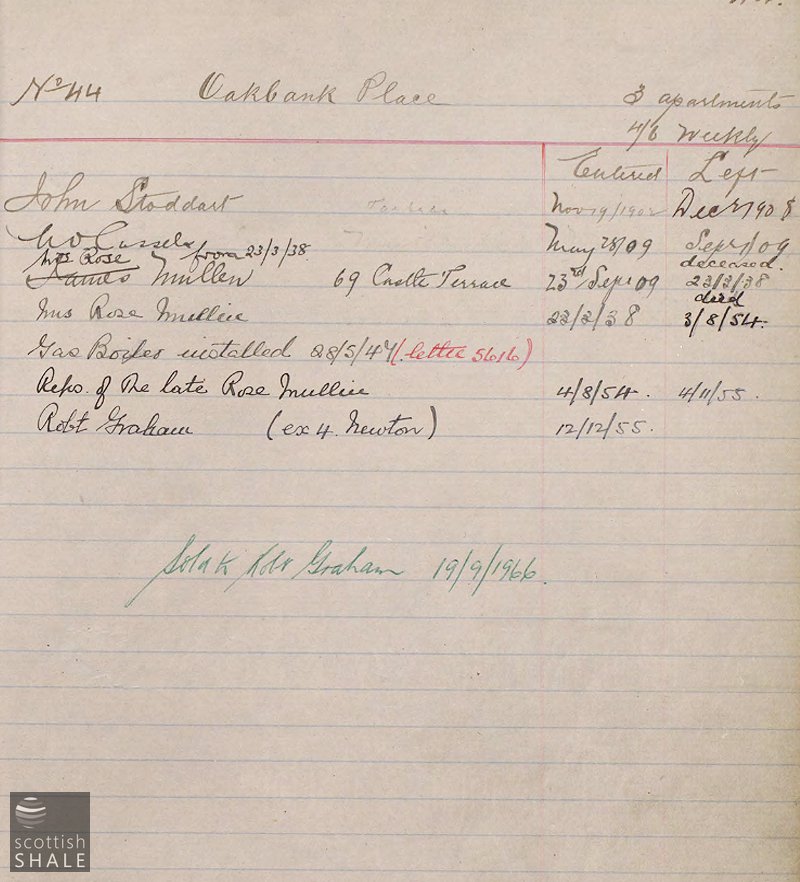 No 44 Oakbank Place 3 apartments
4/6 Weekly
Entered Left
John Stoddart Nov 19/1902 Decr 1908
Wm Cassels May 28/09 Sepr 1/09
Mrs Rose from 23/3/38 deceased.
James Mullen 69 Castle Terrace 23rd Sepr 09 22/2/38
Mrs Rose Mullin 22/2/38 died 3/8/54.
Gas Boiler installed 28/5/47 (letter 5616)
Reps. of The late Rose Mullin 4/8/54. 4/11/55.
Robt Graham (ex 4. Newton) 12/12/55.
Sold to Robt Graham 19/9/1966.
scottish
SHALE